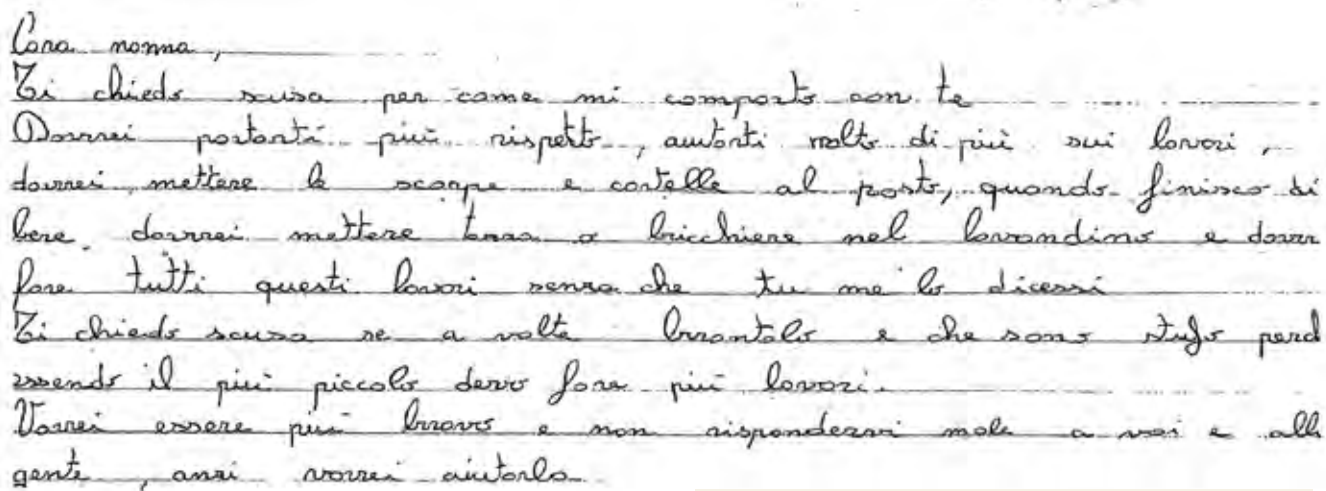 Cara nonna,
Ti chiedo scusa per come mi comporto con te
Dovrei portarti più rispetto, aiutarti molto di più sui lavori,
dovrei mettere le scarpe e cartelle al posto, quando finisco di
bere dovrei mettere tazza o bricchiere nel lavandino e dovrei
fare tutti questi lavori senza che tu me lo dicessi
Ti chiedo scusa se a volte brontolo e che sono stufo perd
essendo il più piccolo devo fare più lavori.
Vorrei essere più bravo e non rispondervi male a voi e alla
gente, anzi vorrei aiutarla